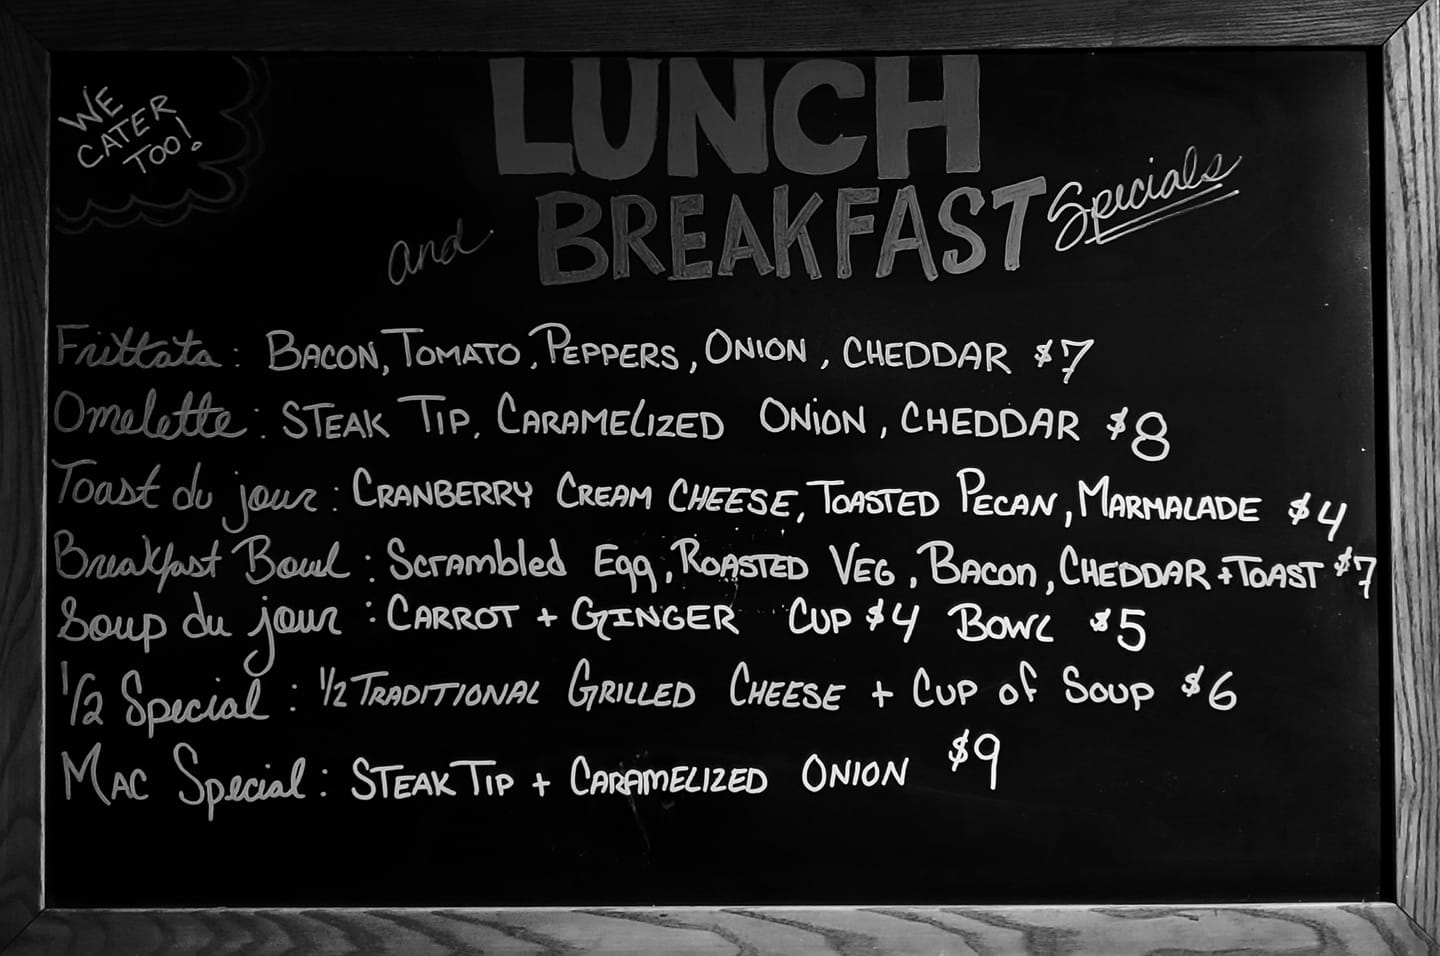 WE
CATER
TOO!
LUNCH
and BREAKFAST Specials
Frittata: BACON, TOMATO, PEPPERS, ONION, CHEDDAR $7
Omelette: STEAK TIP, CARAMELIZED ONION, CHEDDAR $8
Toast du jour: CRANBERRY CREAM CHEESE, TOASTED PECAN, MARMALADE $4
Breakfast Bowl: Scrambled Egg, ROASTED VEG, BACON, CHEDDAR + TOAST $7
Soup du jour: CARROT + GINGER CUP $4 BOWL $5
1/2 Special: 1/2 TRADITIONAL GRILLED CHEESE + CUP of SOUP $6
MAC Special: STEAK TIP + CARAMELIZED ONION $9